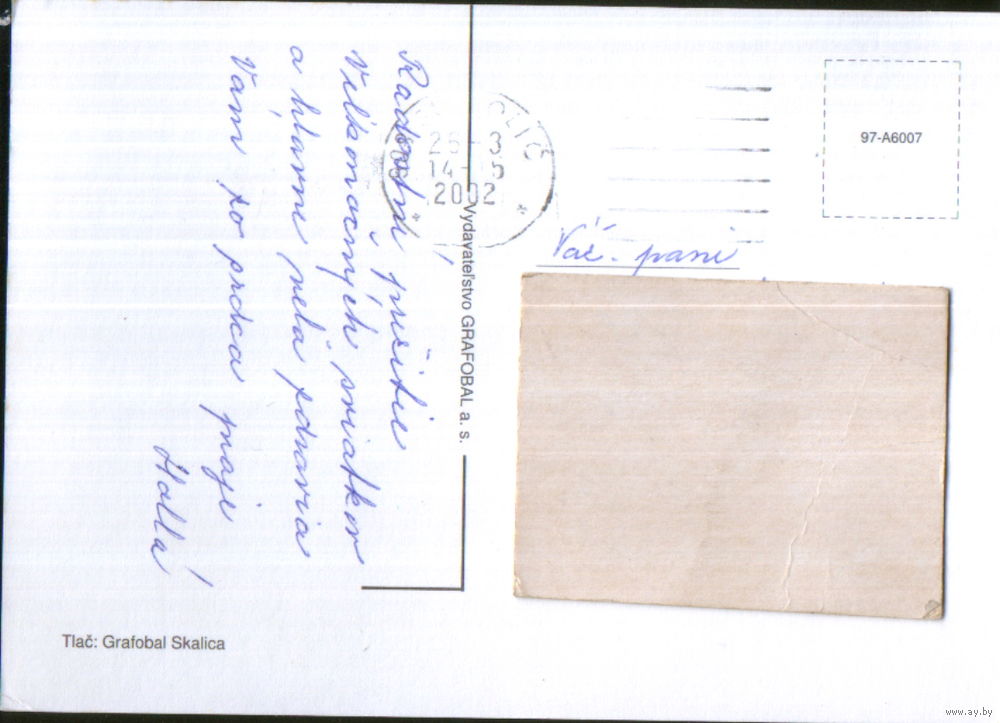 Radostné prežitie
Veľkonočných sviatkov
a hlavne veľa zdravia
Vám zo srdca praje
Halla!
Vydavateľstvo GRAFOBAL a. s.
25-3
14-15
2002
97-A6007
Váž. pani
Tlač: Grafobal Skalica
www.ay.by